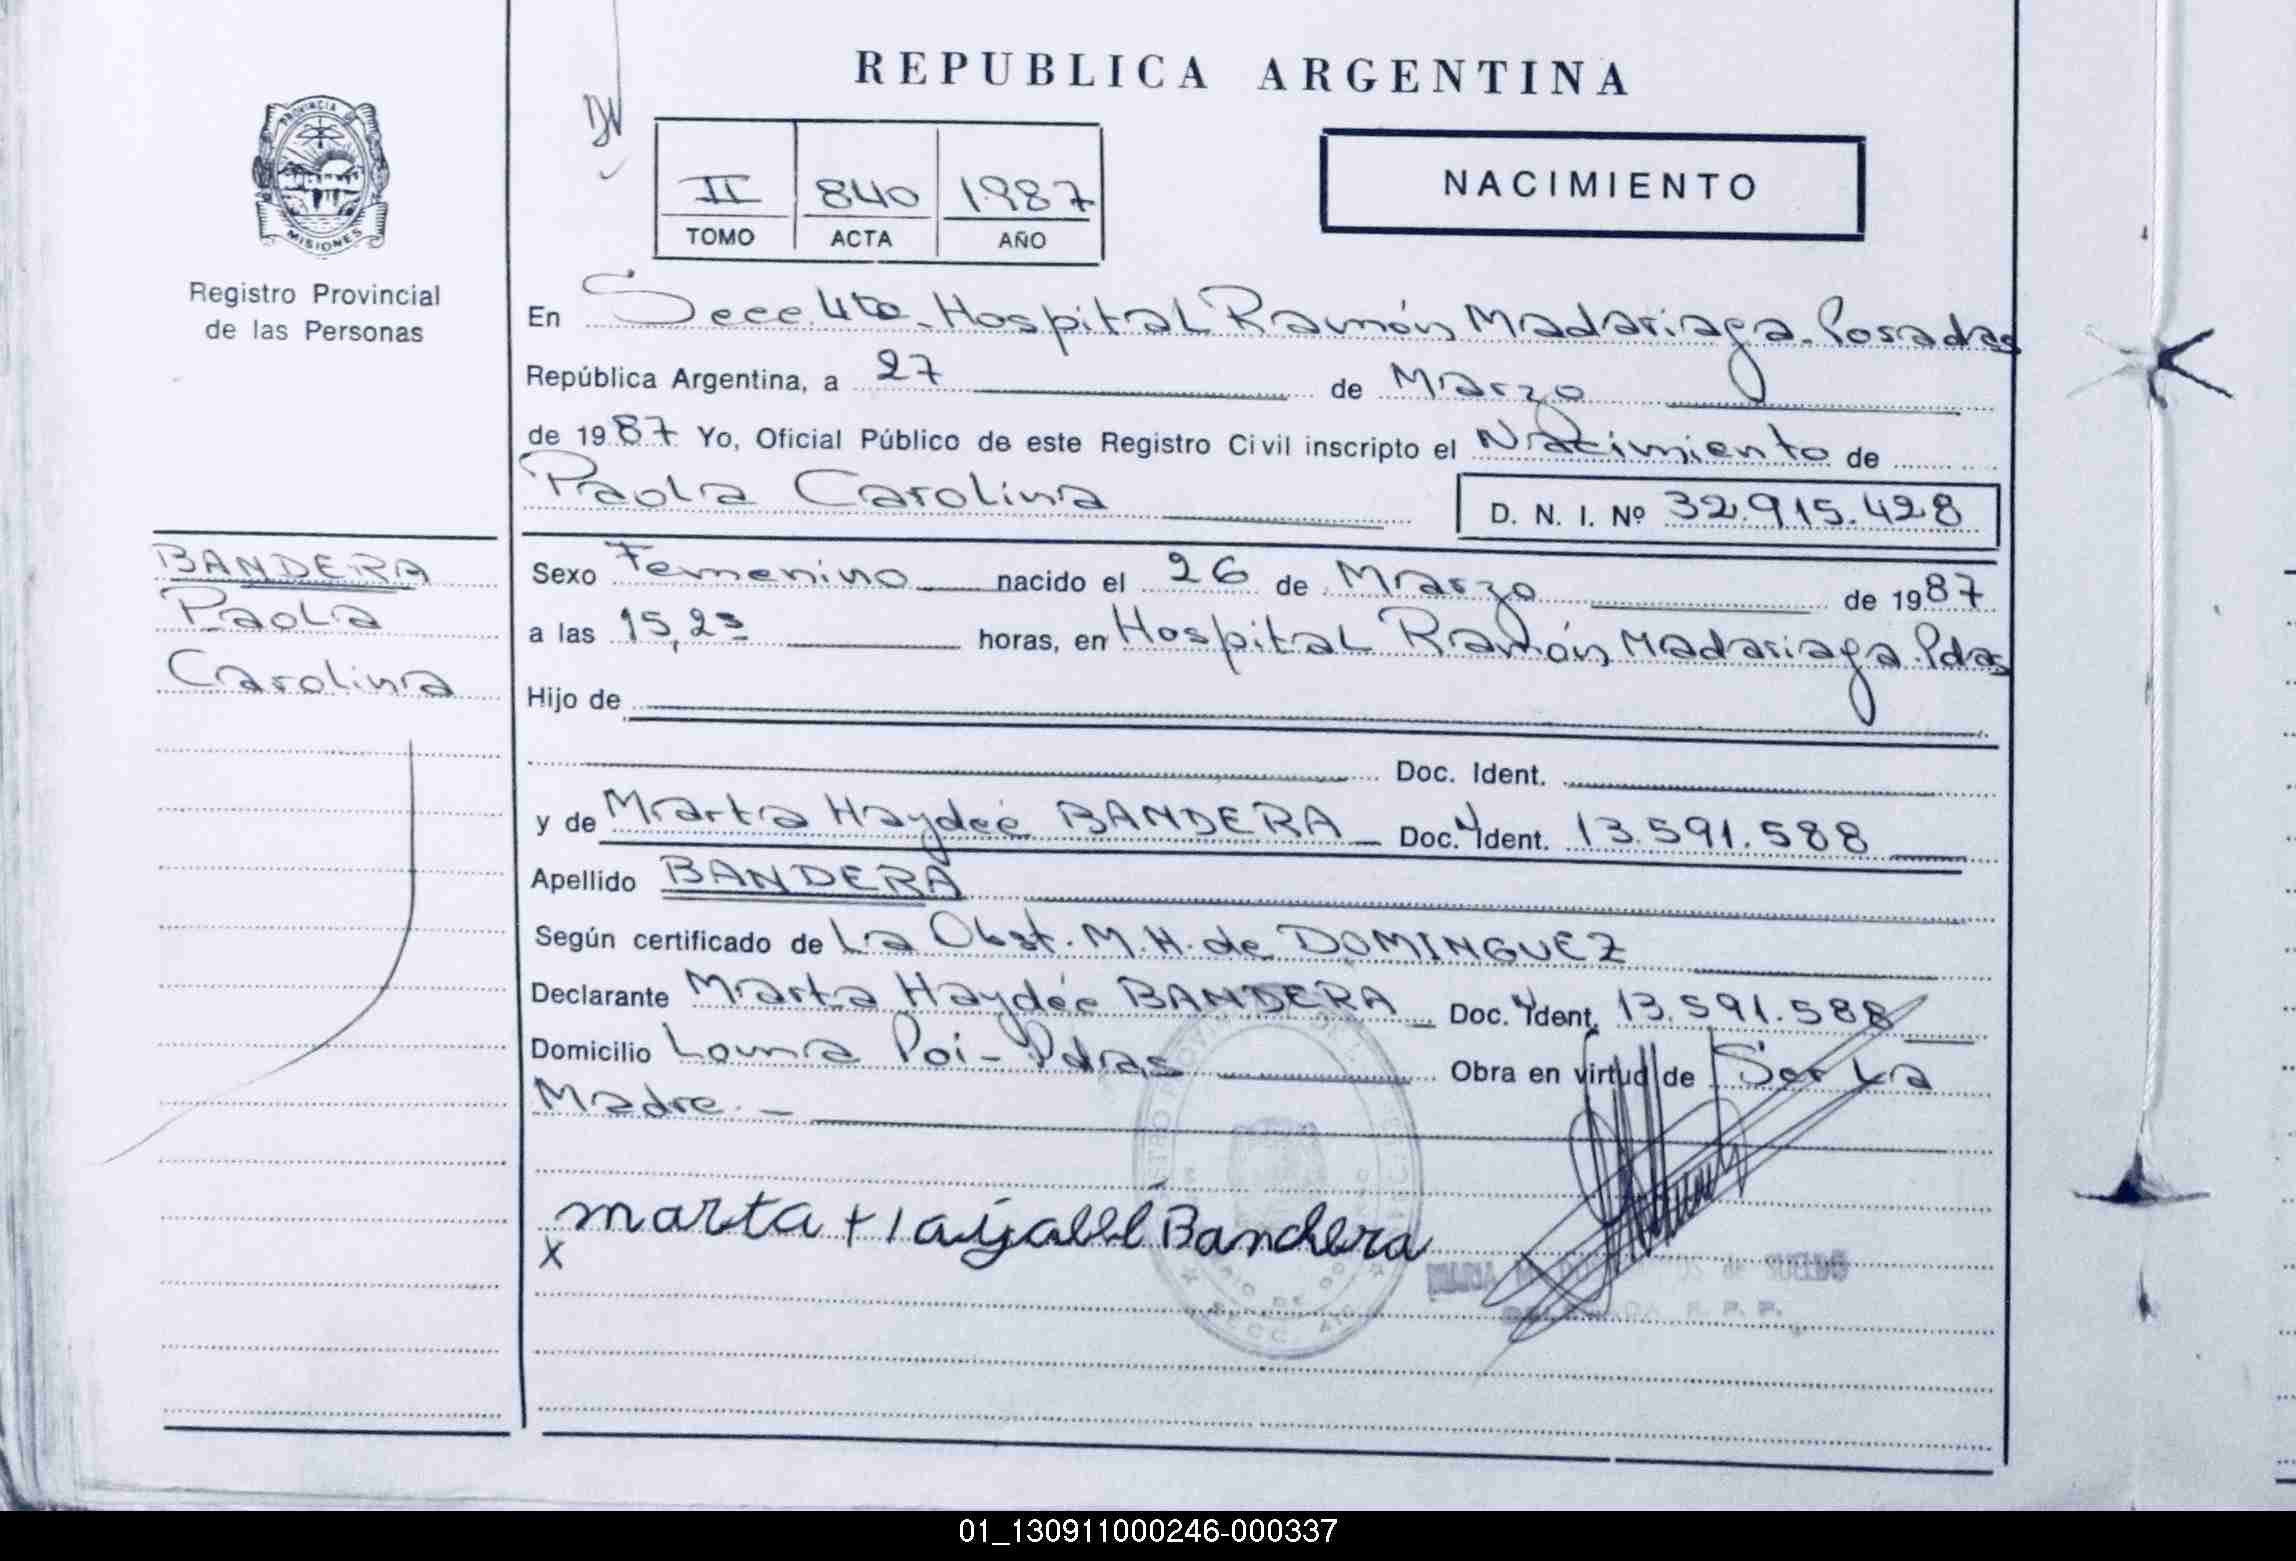 REPUBLICA ARGENTINA
PROVINCIA DE
MISIONES
Registro Provincial
de las Personas
II 840 1987
TOMO ACTA AÑO
NACIMIENTO
En Secc. 4ta. Hospital Ramón Madariaga. Posadas
República Argentina, a 27 de Marzo
de 1987 Yo, Oficial Público de este Registro Civil inscripto el Nacimiento de
Paola Carolina D. N. I. Nº 32.915.428
BANDERA
Paola
Carolina
Sexo Femenino nacido el 26 de Marzo de 1987
a las 15,25 horas, en Hospital Ramón Madariaga. Pdas
Hijo de
Doc. Ident.
y de Marta Haydée BANDERA Doc. Ident. 13.591.588
Apellido BANDERA
Según certificado de La Obst. M. H. de DOMINGUEZ
Declarante Marta Haydée BANDERA Doc. Ident. 13.591.588
Domicilio Loma Poi - Pdas Obra en virtud de Ser La
Madre. -
X marta Bandera
01_130911000246-000337